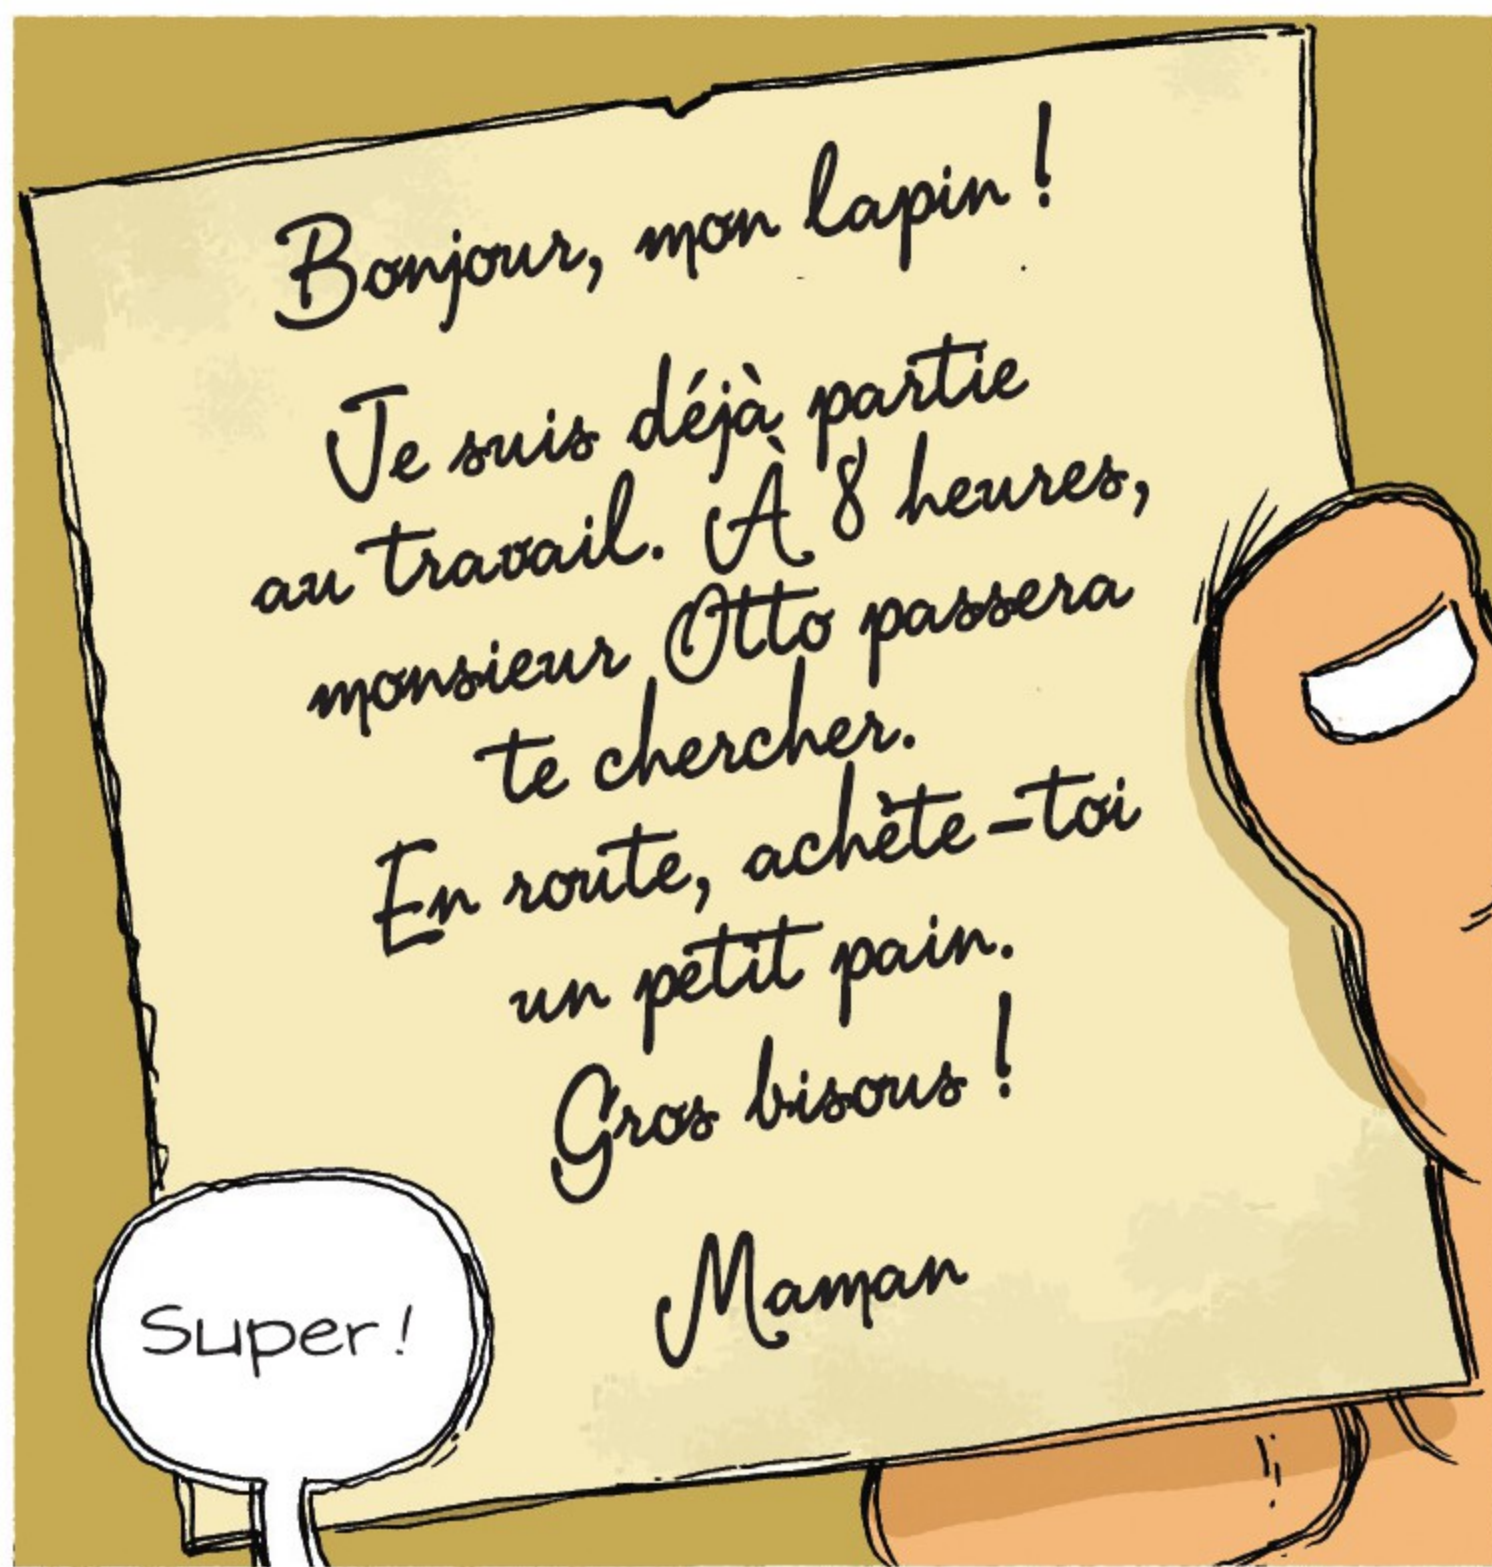 Bonjour, mon lapin !
Je suis déjà partie
au travail. À 8 heures,
monsieur Otto passera
te chercher.
En route, achète-toi
un petit pain.
Gros bisous !
Maman
Super !